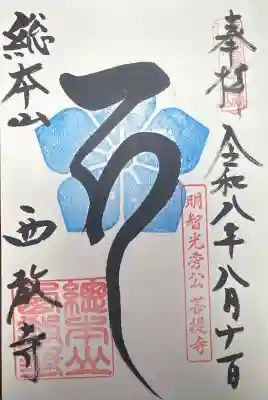 奉拝
令和八年八月十日
明智光秀公 菩提寺
総本山
西教寺